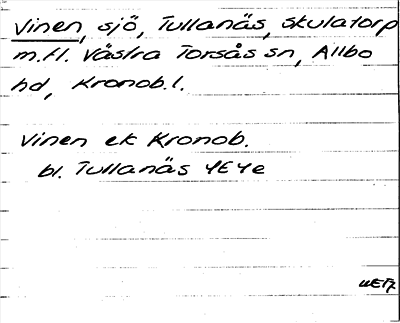 Vinen, sjö, Tullanäs, Skulatorp
m.fl. Västra Torsås sn, Allbo
hd, Kronob.l.
Vinen ek Kronob.
bl. Tullanäs 4E4e